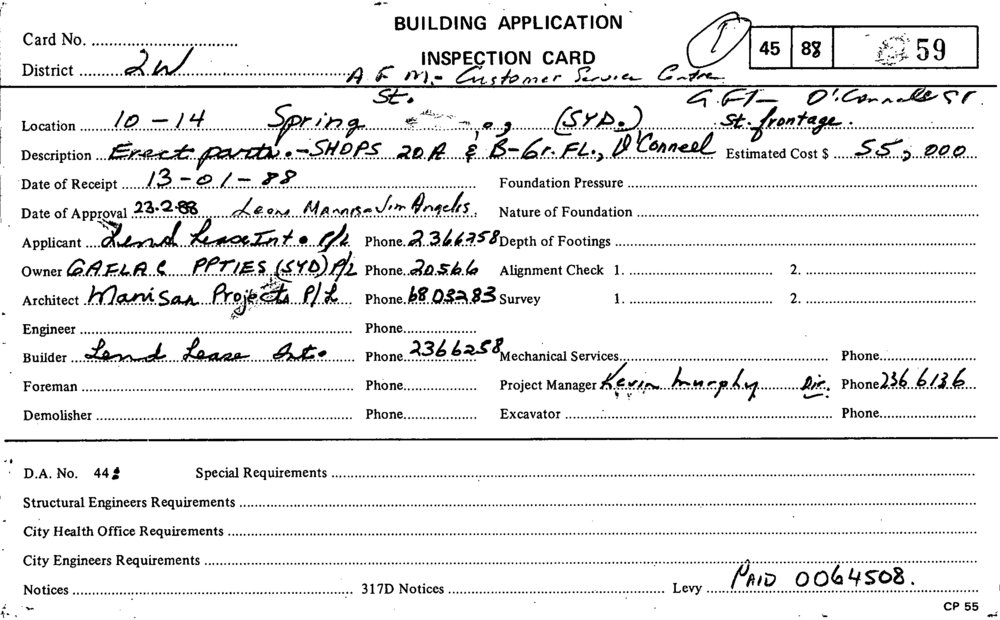 BUILDING APPLICATION
INSPECTION CARD
Card No.
District 2W
1 45 88 59
A F M.- Customer Service Centre
G.FT- O'Connell ST.
St. frontage.
Location 10 - 14 Spring St. (SYD.)
Description Erect partn. - SHOPS 20A & B - Gr. FL., O'Conneel Estimated Cost $ 55,000
Date of Receipt 13-01-88 Foundation Pressure
Date of Approval 23.2.88 Jim Angelis. Nature of Foundation
Applicant Lend Lease Int. P/L Phone. 2366258 Depth of Footings
Owner PPTIES (SYD) P/L Phone. 20566 Alignment Check 1. 2.
Architect Manisan Projects P/L Phone. 6803283 Survey 1. 2.
Engineer Phone
Builder Lend Lease Int. Phone. 2366258 Mechanical Services Phone
Foreman Phone Project Manager Kevin Murphy Dir. Phone 236 6136
Demolisher Phone Excavator Phone
D.A. No. 44 Special Requirements
Structural Engineers Requirements
City Health Office Requirements
City Engineers Requirements
Notices 317D Notices Levy PAID 0064508.
CP 55